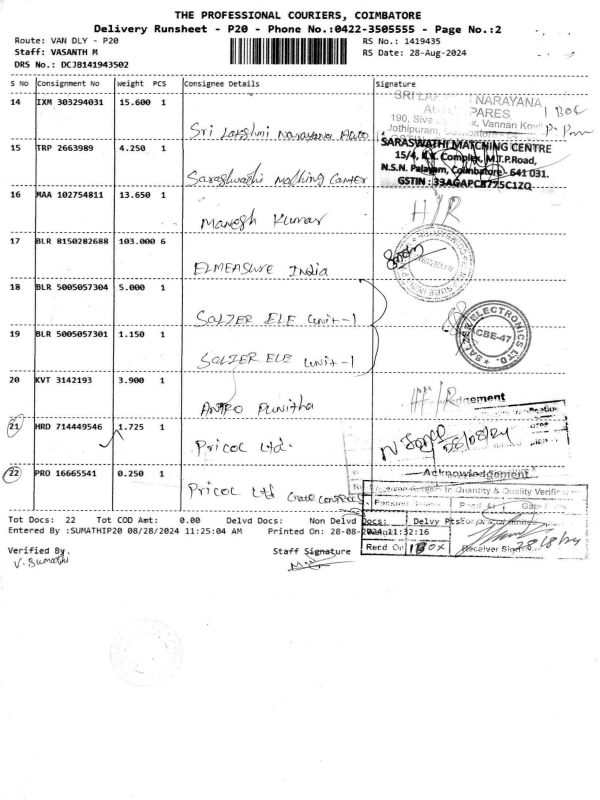 THE PROFESSIONAL COURIERS, COIMBATORE
Delivery Runsheet - P20 - Phone No.:0422-3505555 - Page No.:2
Route: VAN DLY - P20
RS No.: 1419435
Staff: VASANTH M
RS Date: 28-Aug-2024
DRS No.: DCJB141943502
S No Consignment No Weight PCS Consignee Details Signature
14 IXM 303294031 15.600 1
Sri Lakshmi Narayana Auto
SRI LAKSHMI NARAYANA
AUTO SPARES
1 BOX
190, Siva Complex, Vannan Kovil
Jothipuram, Coimbatore
15 TRP 2663989 4.250 1
Sarashwathi Matching Center
SARASWATHI MATCHING CENTRE
15/4, K.K. Complex, M.T.P.Road,
N.S.N. Palayam, Coimbatore - 641 031.
GSTIN : 33AGAPC8775C1ZQ
16 MAA 102754811 13.650 1
Manesh Kumar
H/R
17 BLR 8150282688 103.000 6
ELMEASURE India
18 BLR 5005057304 5.000 1
SALZER ELE Unit-1
SALZER ELECTRONICS LTD.
CBE-47
19 BLR 5005057301 1.150 1
SALZER ELE Unit-1
20 KVT 3142193 3.900 1
ANTRO Punitha
H/R
21 HRD 714449546 1.725 1
Pricol Ltd.
28/08/24
22 PRO 16665541 0.250 1
Pricol Ltd
Acknowledgement
Quantity & Quality Verification
Tot Docs: 22 Tot COD Amt: 0.00 Delvd Docs: Non Delvd Docs: Delvy Pts
Entered By :SUMATHIP20 08/28/2024 11:25:04 AM Printed On: 28-08-2024 11:32:16
Verified By
V. Sumathi
Staff Signature
Recd On
1 BOX
Receiver Sign
28/8/24